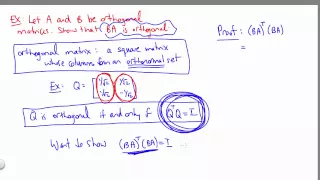 Ex: Let A and B be orthogonal
matrices. Show that BA is orthogonal
orthogonal matrix : a square matrix
whose columns form an orthonormal set
Ex: Q = [ 1/√2 1/√2
1/√2 -1/√2 ]
Q is orthogonal if and only if QᵀQ = I
Want to show (BA)ᵀ(BA) = I ...
Proof : (BA)ᵀ(BA)
=